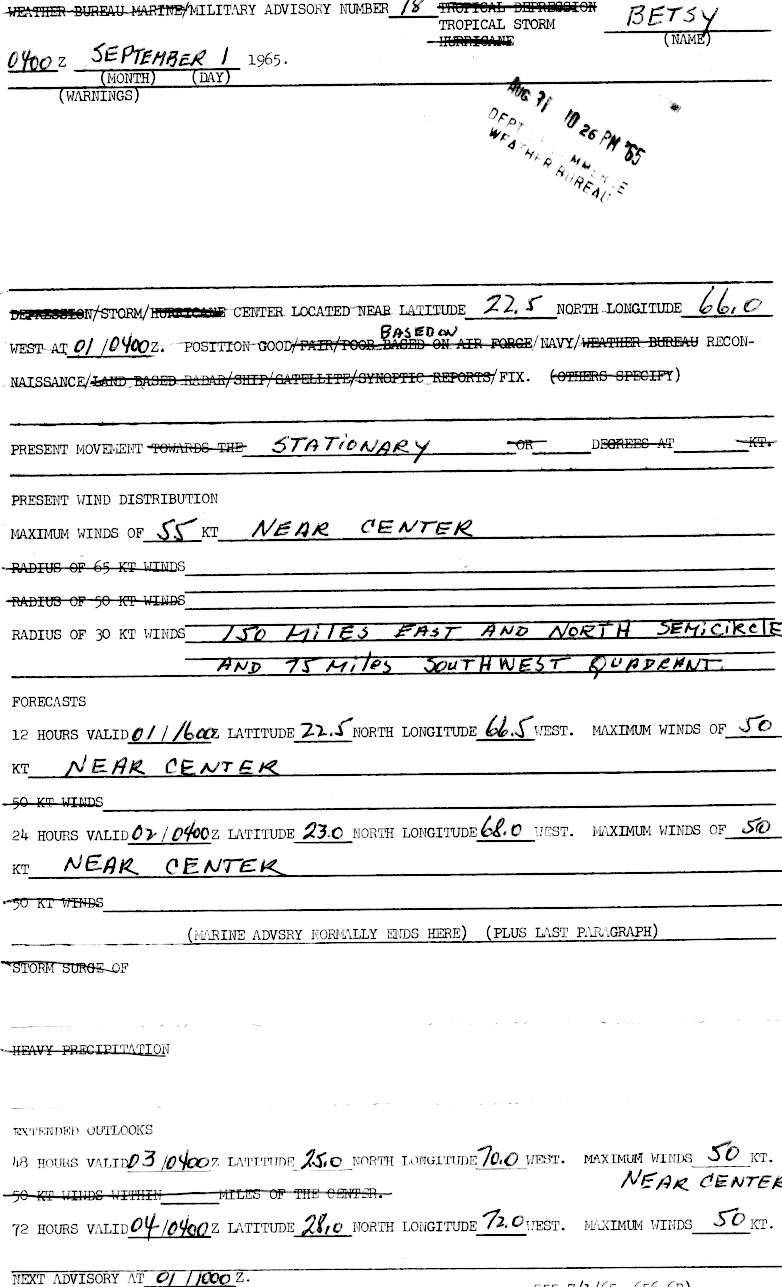 WEATHER BUREAU MARINE/MILITARY ADVISORY NUMBER 18 TROPICAL DEPRESSION
TROPICAL STORM
HURRICANE
BETSY
(NAME)
0400 Z SEPTEMBER 1 1965.
(MONTH) (DAY)
(WARNINGS)
AUG 31 10 26 PM '65
DEPT
WEATHER BUREAU
DEPRESSION/STORM/HURRICANE CENTER LOCATED NEAR LATITUDE 22.5 NORTH LONGITUDE 66.0
BASED ON
WEST AT 01/0400Z. POSITION GOOD/FAIR/POOR BASED ON AIR FORCE/NAVY/WEATHER BUREAU RECON-
NAISSANCE/LAND BASED RADAR/SHIP/SATELLITE/SYNOPTIC REPORTS/FIX. (OTHERS SPECIFY)
PRESENT MOVEMENT TOWARDS THE STATIONARY OR DEGREES AT KT.
PRESENT WIND DISTRIBUTION
MAXIMUM WINDS OF 55 KT NEAR CENTER
RADIUS OF 65 KT WINDS
RADIUS OF 50 KT WINDS
RADIUS OF 30 KT WINDS 150 MILES EAST AND NORTH SEMICIRCLE
AND 75 MILES SOUTHWEST QUADRANT.
FORECASTS
12 HOURS VALID 01/1600Z LATITUDE 22.5 NORTH LONGITUDE 66.5 WEST. MAXIMUM WINDS OF 50
KT NEAR CENTER
50 KT WINDS
24 HOURS VALID 02/0400Z LATITUDE 23.0 NORTH LONGITUDE 68.0 WEST. MAXIMUM WINDS OF 50
KT NEAR CENTER
50 KT WINDS
(MARINE ADVSRY NORMALLY ENDS HERE) (PLUS LAST PARAGRAPH)
STORM SURGE OF
HEAVY PRECIPITATION
EXTENDED OUTLOOKS
48 HOURS VALID 03/0400Z LATITUDE 25.0 NORTH LONGITUDE 70.0 WEST. MAXIMUM WINDS 50 KT.
NEAR CENTER
50 KT WINDS WITHIN MILES OF THE CENTER.
72 HOURS VALID 04/0400Z LATITUDE 28.0 NORTH LONGITUDE 72.0 WEST. MAXIMUM WINDS 50 KT.
NEXT ADVISORY AT 01/1000Z.